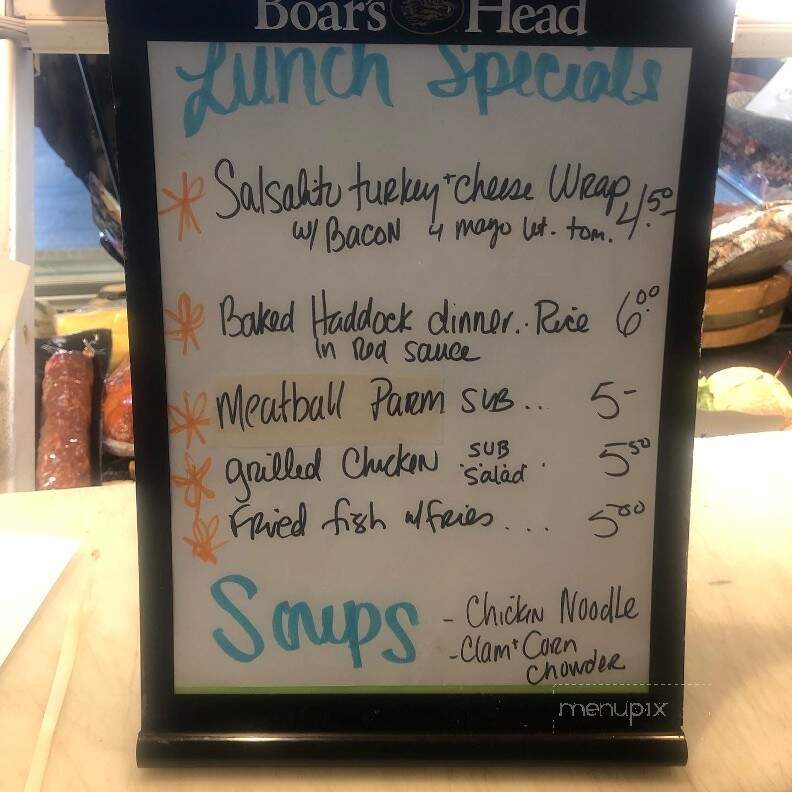 Boar's Head
Lunch Specials
Salsalito turkey + cheese Wrap 4.50
w/ Bacon & mayo let. tom.
Baked Haddock dinner.. Rice 6.00
in Red sauce
Meatball Parm sub .. 5-
grilled Chicken sub salad . 5.50
Fried fish w/ fries . . . . 5.00
Soups - Chicken Noodle
- Clam + Corn
Chowder
menupix